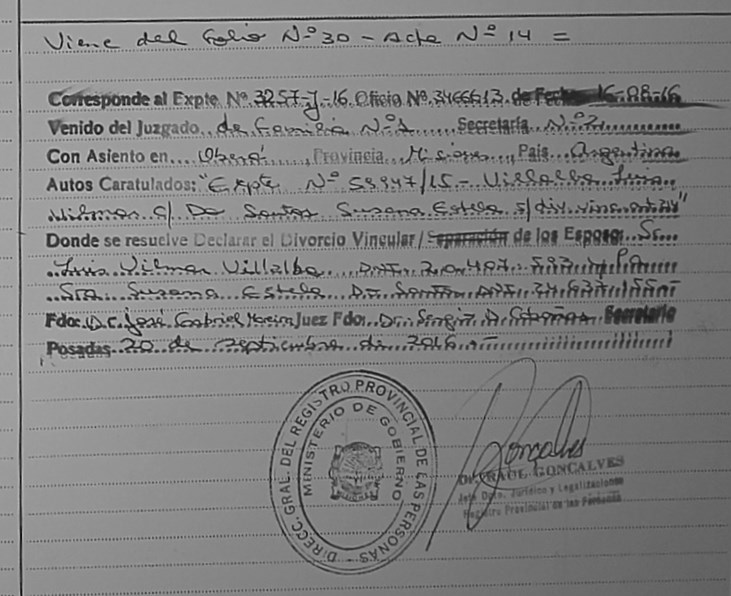 Viene del Folio Nº 30 - Acta Nº 14 =
Corresponde al Expte Nº 3257-J-16 Oficio Nº 3466613 de Fecha 16-08-16
Venido del Juzgado de Familia Nº 1 Secretaría Nº 2
Con Asiento en Oberá Provincia Misiones País Argentina
Autos Caratulados: "Expte Nº 59947/15 - Villalba Luis
Wilmar c/ De Santos Susana Estela s/ div.
Donde se resuelve Declarar el Divorcio Vincular / Separación de los Esposos Sr.
Luis Wilmar Villalba
Sra Susana Estela
Fdo: Dr. José Gabriel Juez Fdo: Dr. Sergio Secretario
Posadas 20 de Septiembre de 2016.-
DIRECC. GRAL. DEL REGISTRO PROVINCIAL DE LAS PERSONAS
MINISTERIO DE GOBIERNO
Goncalves
Dr. RAUL GONCALVES
Jefe Dpto. Jurídico y Legalizaciones
Registro Provincial de las Personas